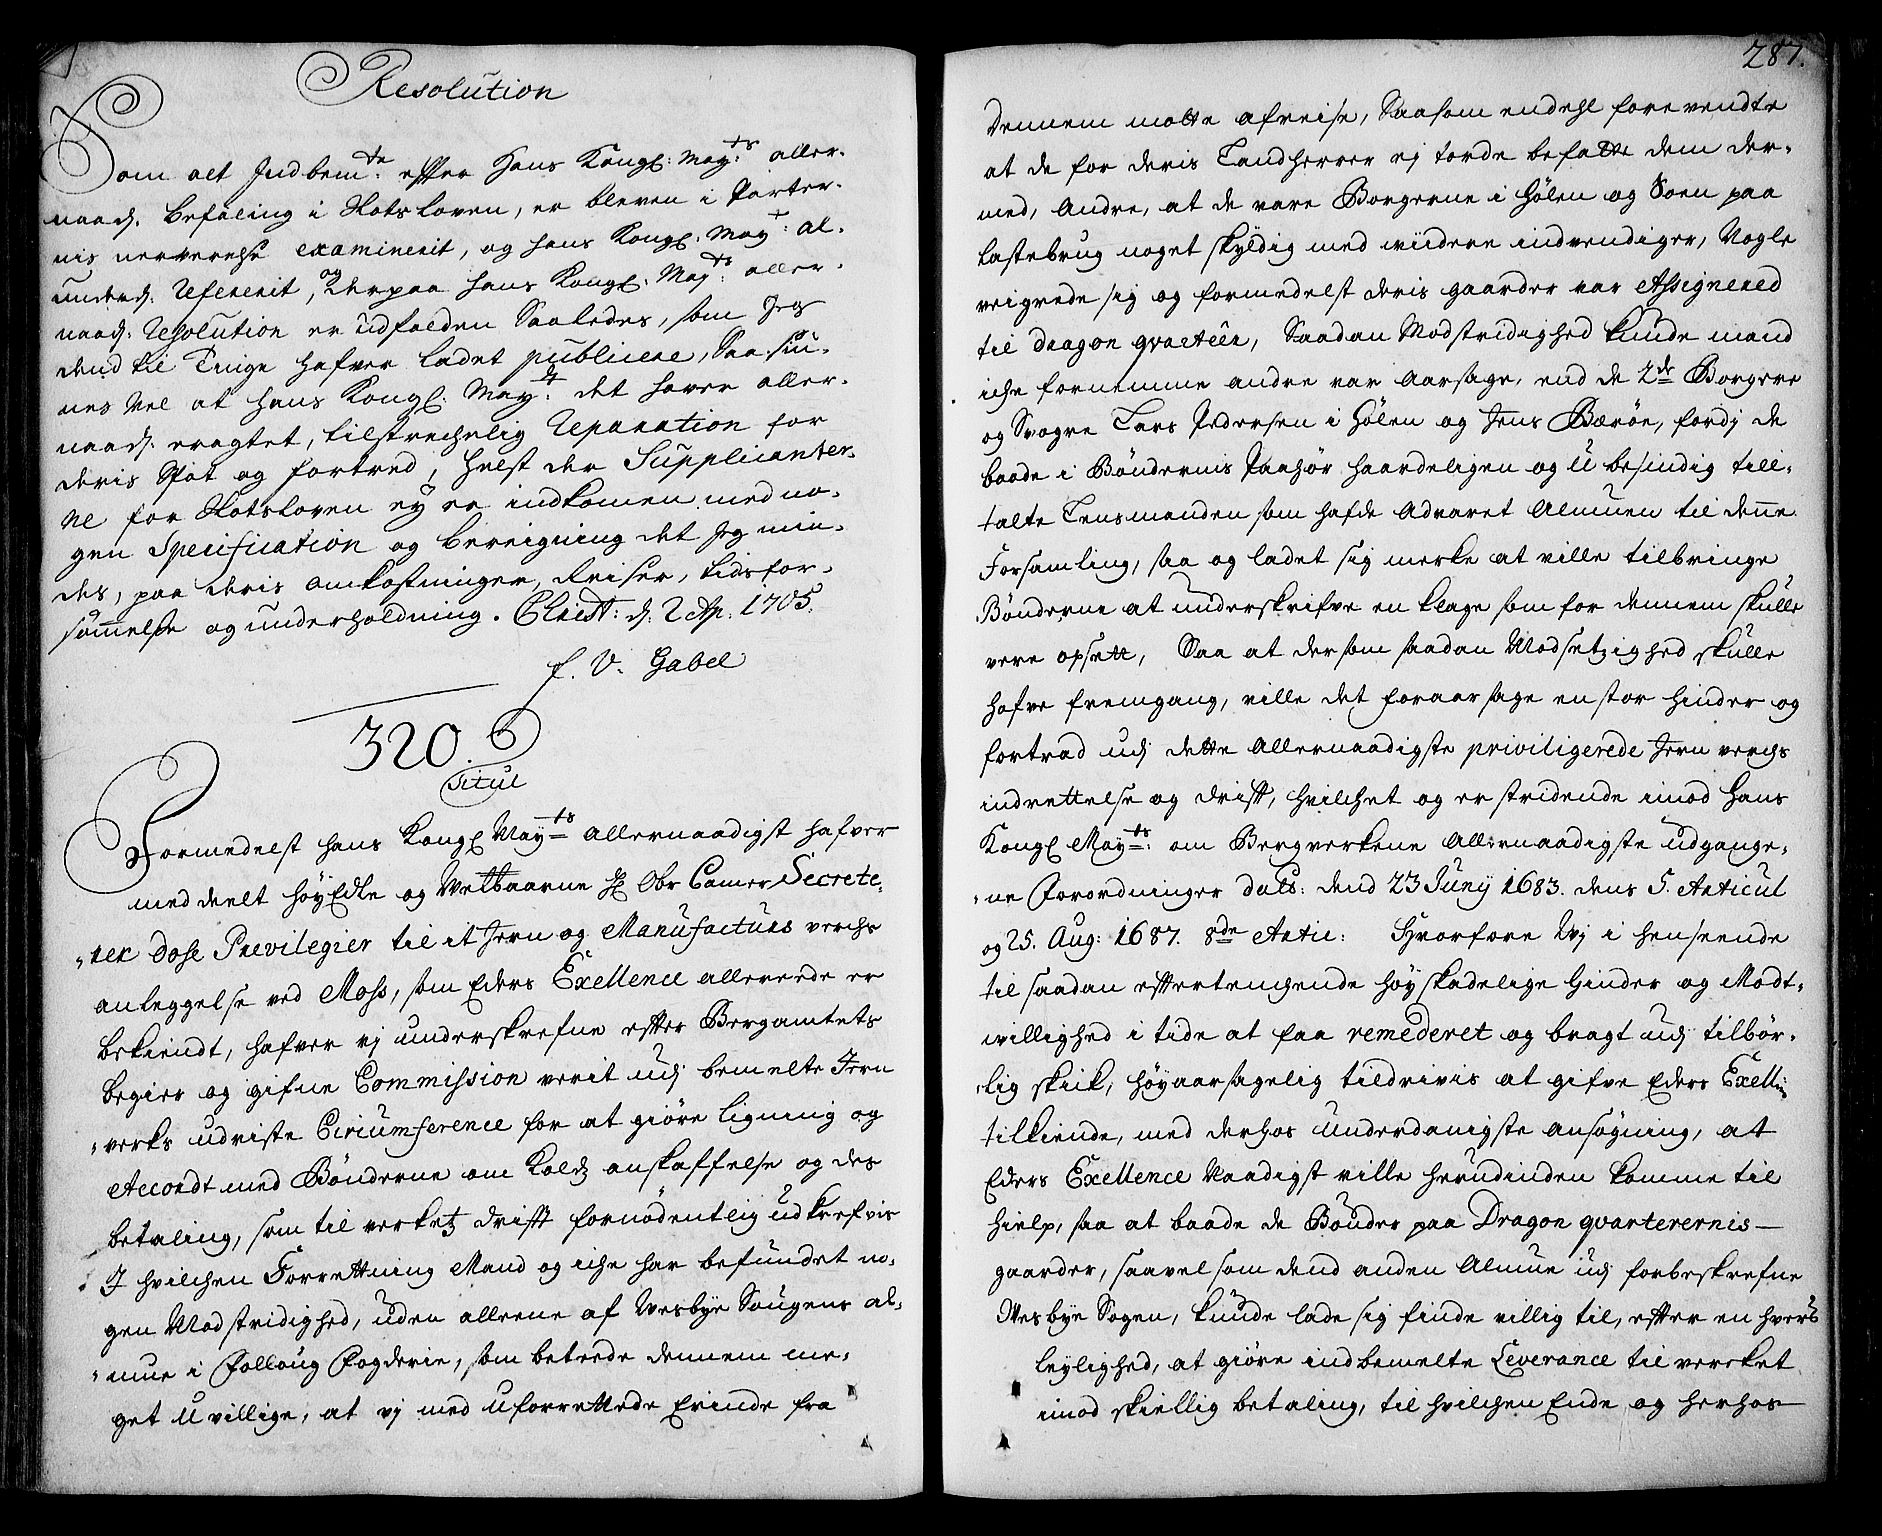 Resolution
Som alt Indbem:te effter Hans Kongl: May:ts aller-
naad: befaling i Slotsloven, er bleven i Parter-
nis nerverelse examinerit, og hans Kongl: May:t al-
underd: Refererit, og Derpaa hans Kongl: May:ts aller-
naad: Resolution er udfalden Saaledes, som Jeg
dend til Tinge hafver ladet publicere, Saa siu-
nes vel at hans Kongl: May:t det haver aller-
naad: eragtet, tilstrechelig Reparation for
deris Spot og fortred, helst der Supplicanter-
ne for Slotsloven ey er indkomen med no-
gen Specification og bereigning det Jeg min-
des, paa deris omkostninger, Reiser, tidsfor-
sømmelse og underholdning. Christ: d: 2 Ap: 1705.
F. V. Gabel
320.
Titul
Formedelst hans Kongl May:ts allernaadigst hafver
meddeelt høyEdle og Velbaarne Hr Obr Camer Secrete-
rer Dose Previlegier til it Jern og Manufacturs verchs
anleggelse ved Moss, som Eders Exellence allerede er
bekiendt, hafver vj underskrefne effter Bergamtets
begier og gifne Commission verit udj bemelte Jern
verks udviste Circumference for at giøre ligning og
Accordt med Bønderne om Kolds anskaffelse og des
betaling, som til verketz drifft fornødentlig udkrefvis
I hvilchen Forrettning Mand og iche har befundet no-
gen Modstridighed, uden alleene af Vesbye Sougens al-
mue i Folloug Fogderie, som betede dennem me-
get Uvillige, at vj med uforrettede Erinde fra
287.
dennem motte afreise, Saasom endehl forevendte
at de for deris Landherrer ej torde befatte dem der-
med, Andre, at de vare Borgerne i Hølen og Soen paa
lastebrug noget skyldig med viidere indvendiger, Nogle
veigrede sig og formedelst deris gaarder var Assignered
til dragon qvarteer, Saadan Modstridighed kunde mand
iche fornemme andre var Aarsage, end de 2de Borgere
og Svogre Lars Pedersen i Hølen og Jens Bærøe, fordj de
baade i Bøndernis Paahør haardeligen og U besindig till-
talte Lensmanden som hafde Advaret Almuen til denne
Forsamling, saa og ladet sig merke at ville tilbringe
Bønderne at underskrifve en klage som for dennem skulle
vere opsett, Saa at dersom saadan Modsetzighed skulle
hafve fremgang, ville det foraarsage en stor hinder og
fortred udj dette Allernaadigste priviligerede Jern verchs
indrettelse og drifft, hvilchet og er stridende imod Hans
Kongl May:ts om Bergverkene Allernaadigste udgange-
ne Forordninger dats: dend 23 Junij 1683. dens 5. Articul
og 25. Aug: 1687. 8de Artic: Hvorfore Vj i henseende
til saadan effterteng﻿ende høyskadelige Hinder og Modt-
villighed i tide at faa remederet og bragt udj tilbør-
lig skik, høyaarsagelig tildrivis at gifve Eders Exell:
tilkiende, med derhos Underdanigste ansøgning, at
Eders Exellence Naadigst ville herudinden komme til
hielp, saa at baade de Bønder paa Dragon qvarterernis
gaarder, saavelsom dend anden Almue udj forbeskrefne
Vesbye Sogen, kunde lade sig finde villig til, effter en hvers
leylighed, at giøre indbemelte Leverance til verket
imod skiellig betaling, til hvilchen Ende og herhos